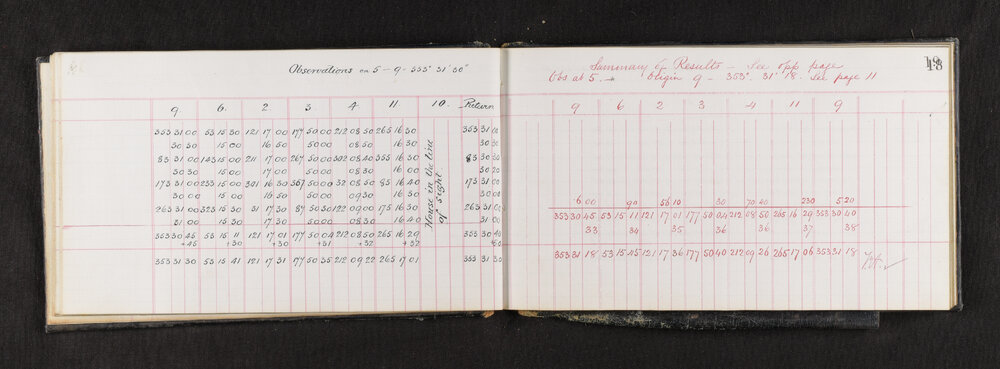 Observations on 5 - 9 - 353° 31' 30"
9 6. 2 3. 4 11 10. Return
353 31 00 53 15 30 121 17 00 177 50 00 212 08 50 265 16 30 353 31 00
30 30 15 00 16 50 50 00 08 50 16 30 30 30
83 31 00 143 15 00 211 17 00 267 50 00 302 08 40 355 16 30 83 30 30
30 30 15 00 17 00 50 00 08 30 16 00 30 20
173 31 00 233 15 00 301 16 50 357 50 00 32 08 50 85 16 40 173 31 00
30 00 15 00 16 50 50 00 09 00 16 30 30 00
263 31 00 323 15 30 31 17 30 87 50 30 122 09 00 175 16 30 263 31 00
31 00 15 30 17 30 50 00 08 30 16 40 31 00
House in the line
of sight
353 30 45 53 15 11 121 17 01 177 50 04 212 08 50 265 16 29 353 30 40
+45 +30 +30 +31 +32 +32 50
353 31 30 53 15 41 121 17 31 177 50 35 212 09 22 265 17 01 353 31 30
Summary of Results - See opp page
Obs at 5. - Origin 9 - 353°. 31' 18. See page 11
9 6 2 3 4 11 9
6 00 90 56 10 30 70 40 230 5 20
353 30 45 53 15 11 121 17 01 177 50 04 212 08 50 265 16 29 353 30 40
33 34 35 36 36 37 38
353 31 18 53 15 45 121 17 36 177 50 40 212 09 26 265 17 06 353 31 18